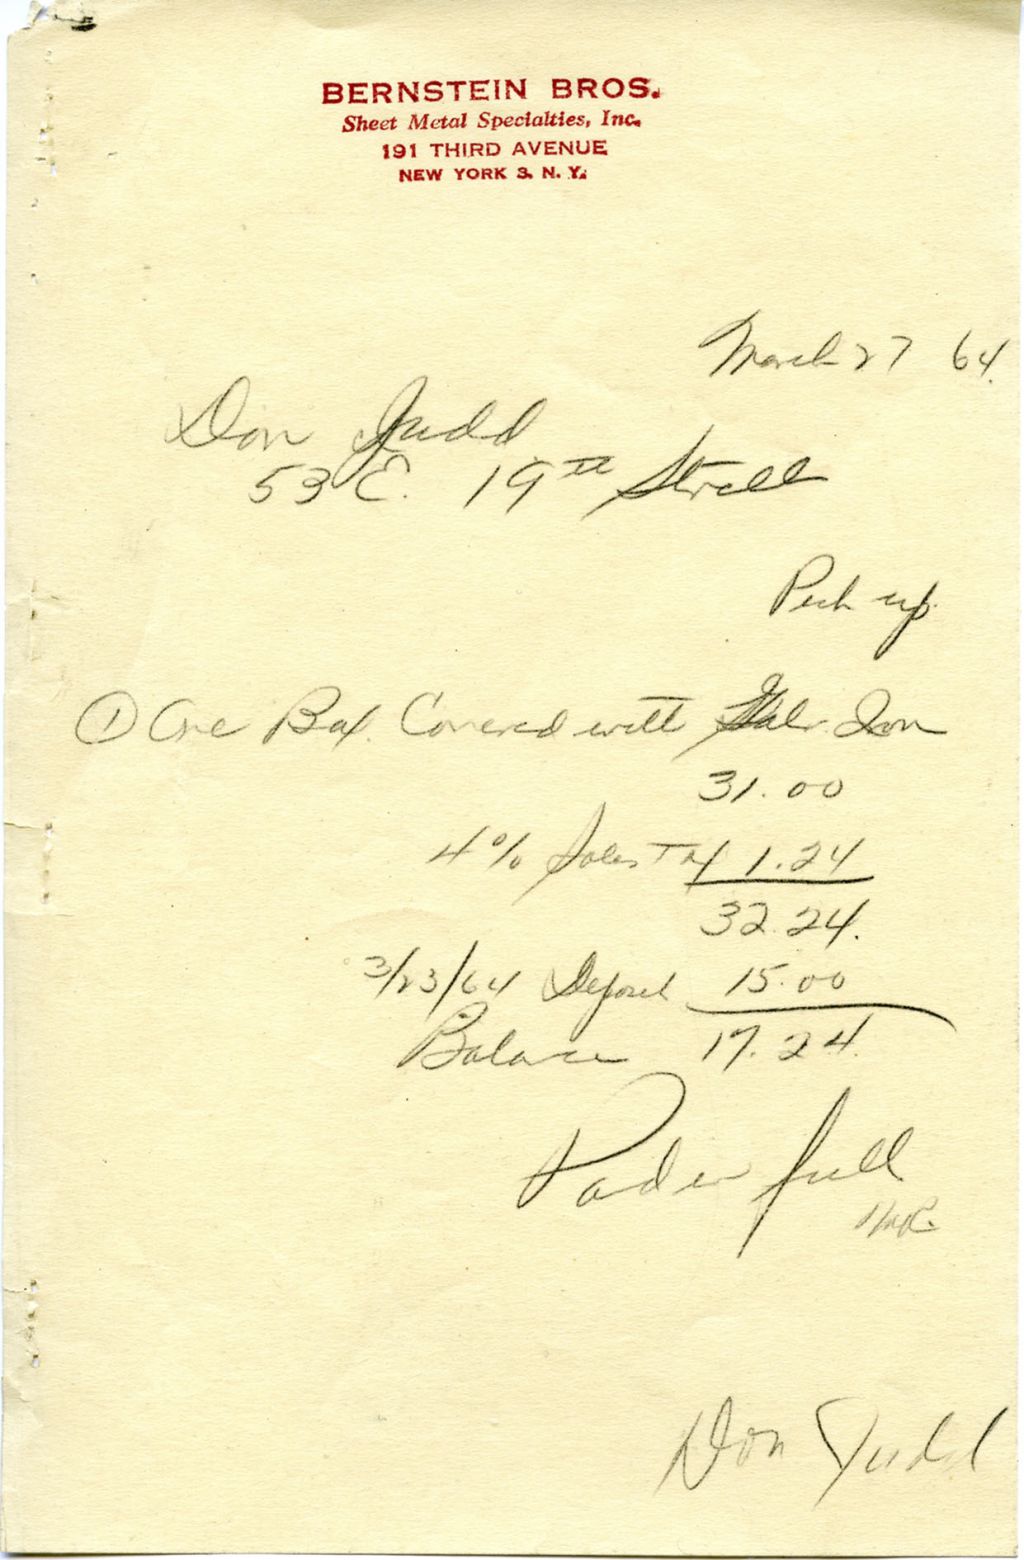 BERNSTEIN BROS.
Sheet Metal Specialties, Inc.
191 THIRD AVENUE
NEW YORK 3, N. Y.
March 27 64.
Don Judd
53 E. 19th Street
Pick up
① One Box Covered with Galv. Iron
31.00
4% Sales Tax 1.24
32.24.
3/23/64 Deposit 15.00
Balance 17.24
Paid in full
Don Judd